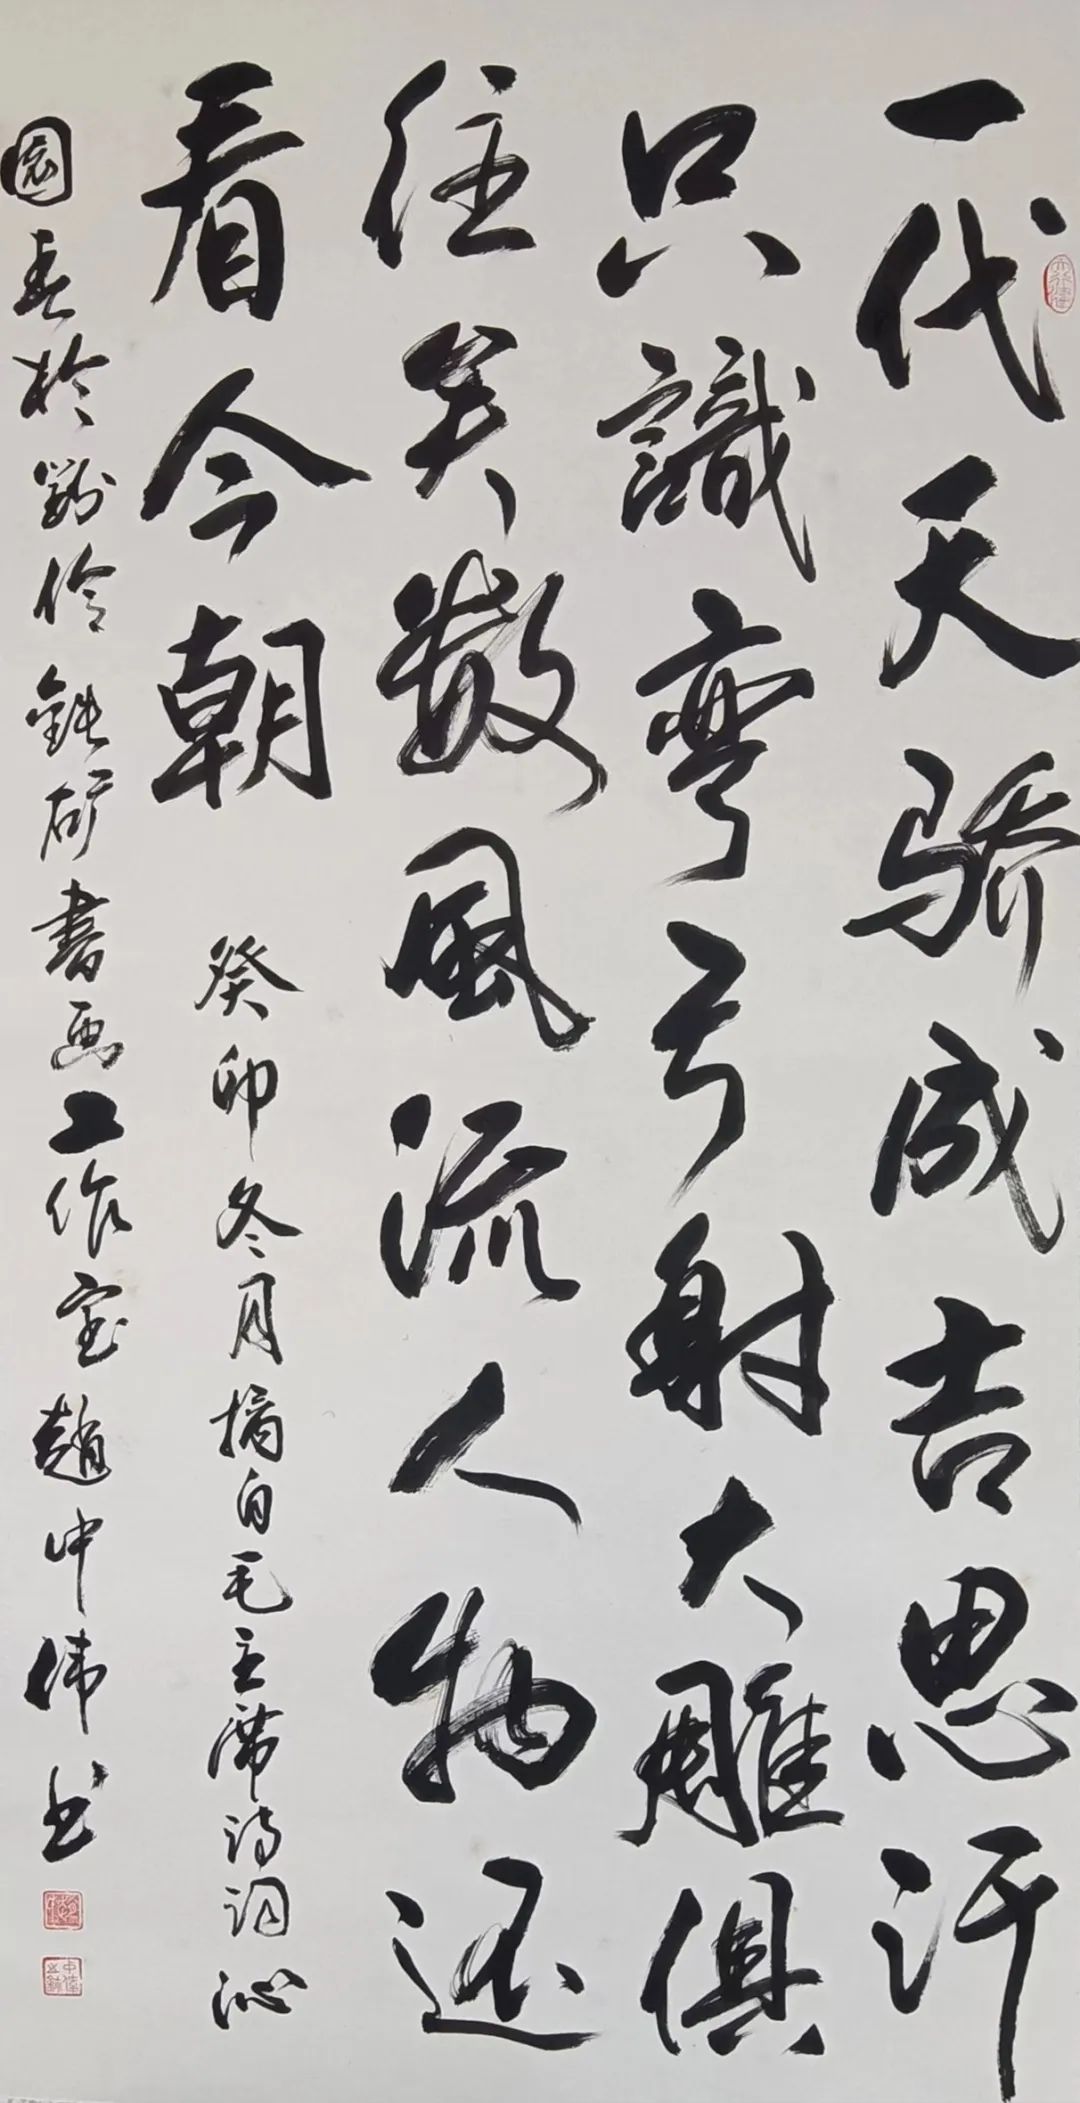 一代天骄成吉思汗
只識弯弓射大雕俱
往矣数風流人物还
看今朝 癸卯冬月摘自毛主席诗词沁
園春於伶鉄矿書画工作室趙中伟书